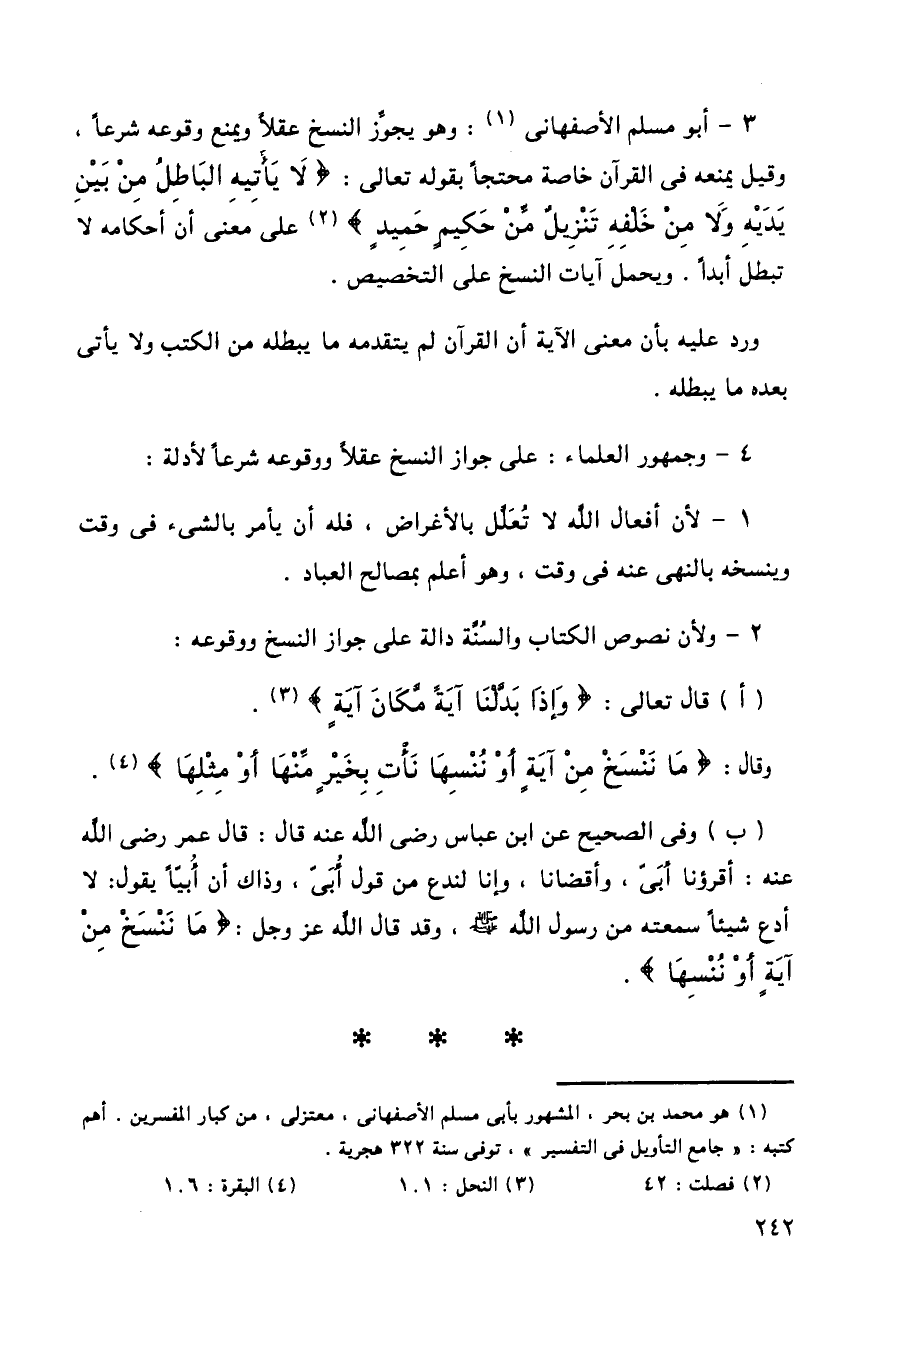 ٣ - أبو مسلم الأصفهانى (١) : وهو يجوِّز النسخ عقلاً ويمنع وقوعه شرعاً ،
وقيل يمنعه فى القرآن خاصة محتجاً بقوله تعالى : ﴿ لَا يَأْتِيهِ البَاطِلُ مِنْ بَيْنِ
يَدَيْهِ وَلَا مِنْ خَلْفِهِ تَنْزِيلٌ مِّنْ حَكِيمٍ حَمِيدٍ ﴾ (٢) على معنى أن أحكامه لا
تبطل أبداً . ويحمل آيات النسخ على التخصيص .
ورد عليه بأن معنى الآية أن القرآن لم يتقدمه ما يبطله من الكتب ولا يأتى
بعده ما يبطله .
٤ - وجمهور العلماء : على جواز النسخ عقلاً ووقوعه شرعاً لأدلة :
١ - لأن أفعال الله لا تُعَلَّل بالأغراض ، فله أن يأمر بالشىء فى وقت
وينسخه بالنهى عنه فى وقت ، وهو أعلم بمصالح العباد .
٢ - ولأن نصوص الكتاب والسُنَّة دالة على جواز النسخ ووقوعه :
( أ ) قال تعالى : ﴿ وَإِذَا بَدَّلْنَا آيَةً مَّكَانَ آيَةٍ ﴾ (٣) .
وقال : ﴿ مَا نَنْسَخْ مِنْ آيَةٍ أَوْ نُنْسِهَا نَأْتِ بِخَيْرٍ مِّنْهَا أَوْ مِثْلِهَا ﴾ (٤) .
( ب ) وفى الصحيح عن ابن عباس رضى الله عنه قال : قال عمر رضى الله
عنه : أقرؤنا أُبَىّ ، وأقضانا ، وإنا لندع من قول أُبَىّ ، وذاك أن أُبيّاً يقول: لا
أدع شيئاً سمعته من رسول الله ﷺ ، وقد قال الله عز وجل :﴿ مَا نَنْسَخْ مِنْ
آيَةٍ أَوْ نُنْسِهَا ﴾ .
* * *
(١) هو محمد بن بحر ، المشهور بأبى مسلم الأصفهانى ، معتزلى ، من كبار المفسرين . أهم
كتبه : « جامع التأويل فى التفسير » ، توفى سنة ٣٢٢ هجرية .
(٢) فصلت : ٤٢ (٣) النحل : ١٠١ (٤) البقرة : ١٠٦
٢٤٢